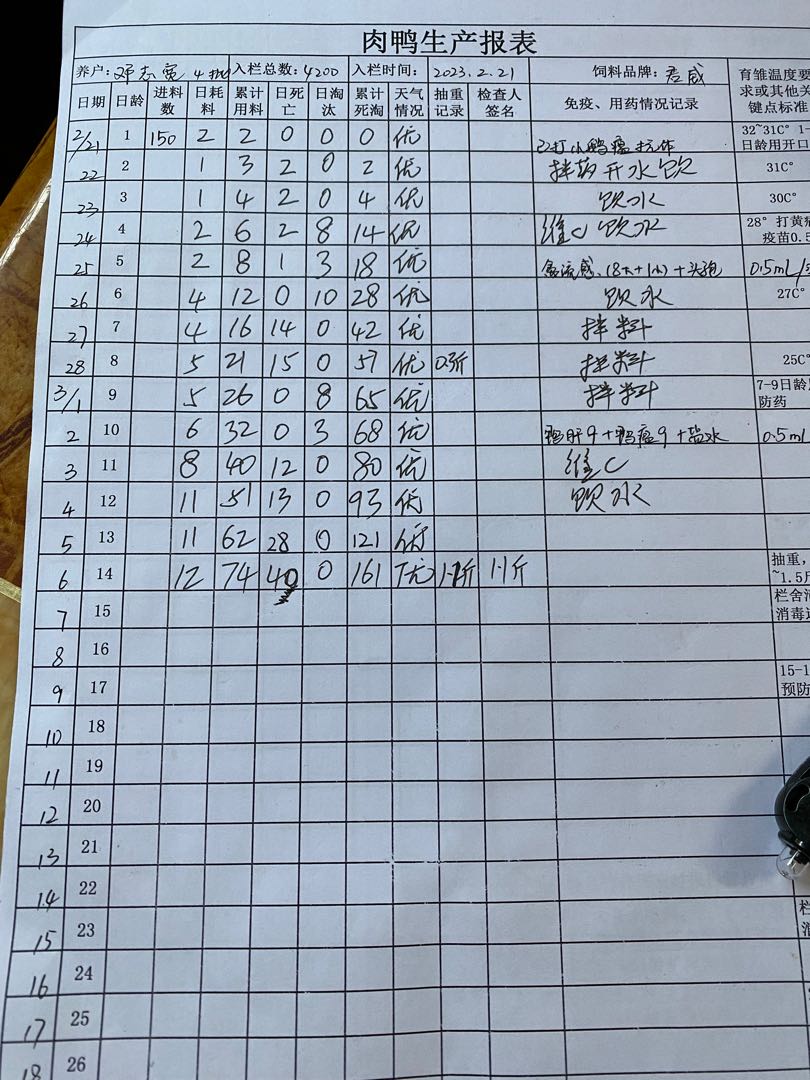 肉鸭生产报表
养户: 邓志宽 4批 入栏总数: 4200 入栏时间: 2023.2.21 饲料品牌: 君威 育雏温度要
日期 日龄 进料数 日耗料 累计用料 日死亡 日淘汰 累计死淘 天气情况 抽重记录 检查人签名 免疫、用药情况记录 求或其他关键点标准
2/21 1 150 2 2 0 0 0 优 已打小鹅瘟抗体 32~31C° 1- 日龄用开口
22 2 1 3 2 0 2 优 拌药开水饮 31C°
23 3 1 4 2 0 4 优 饮水 30C°
24 4 2 6 2 8 14 优 维C 饮水 28° 打黄病 疫苗0.5
25 5 2 8 1 3 18 优 禽流感 + 头孢 0.5mL/
26 6 4 12 0 10 28 优 饮水 27C°
27 7 4 16 14 0 42 优 拌料
28 8 5 21 15 0 57 优 拌料 25C°
3/1 9 5 26 0 8 65 优 拌料 7-9日龄 防药
2 10 6 32 0 3 68 优 鸭肝9+鸭瘟9+盐水 0.5mL
3 11 8 40 12 0 80 优 维C
4 12 11 51 13 0 93 优 饮水
5 13 11 62 28 0 121 优
6 14 12 74 40 0 161 优 1-1斤 1-1斤 抽重, ~1.5斤
7 15 栏舍 消毒
8 16
9 17 15-1 预防
10 18
11 19
12 20
13 21
14 22
15 23
16 24
17 25
18 26